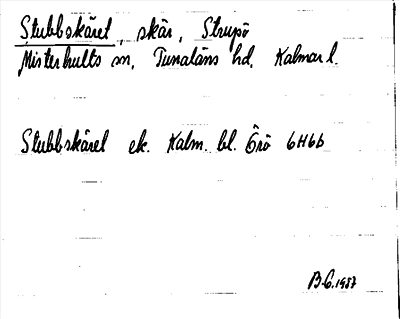 Stubbskäret, skär, Strupö
Misterhults sn, Tunaläns hd, Kalmar l.
Stubbskäret ek. Kalm. bl. Örö 6H6b
B.G. 1937